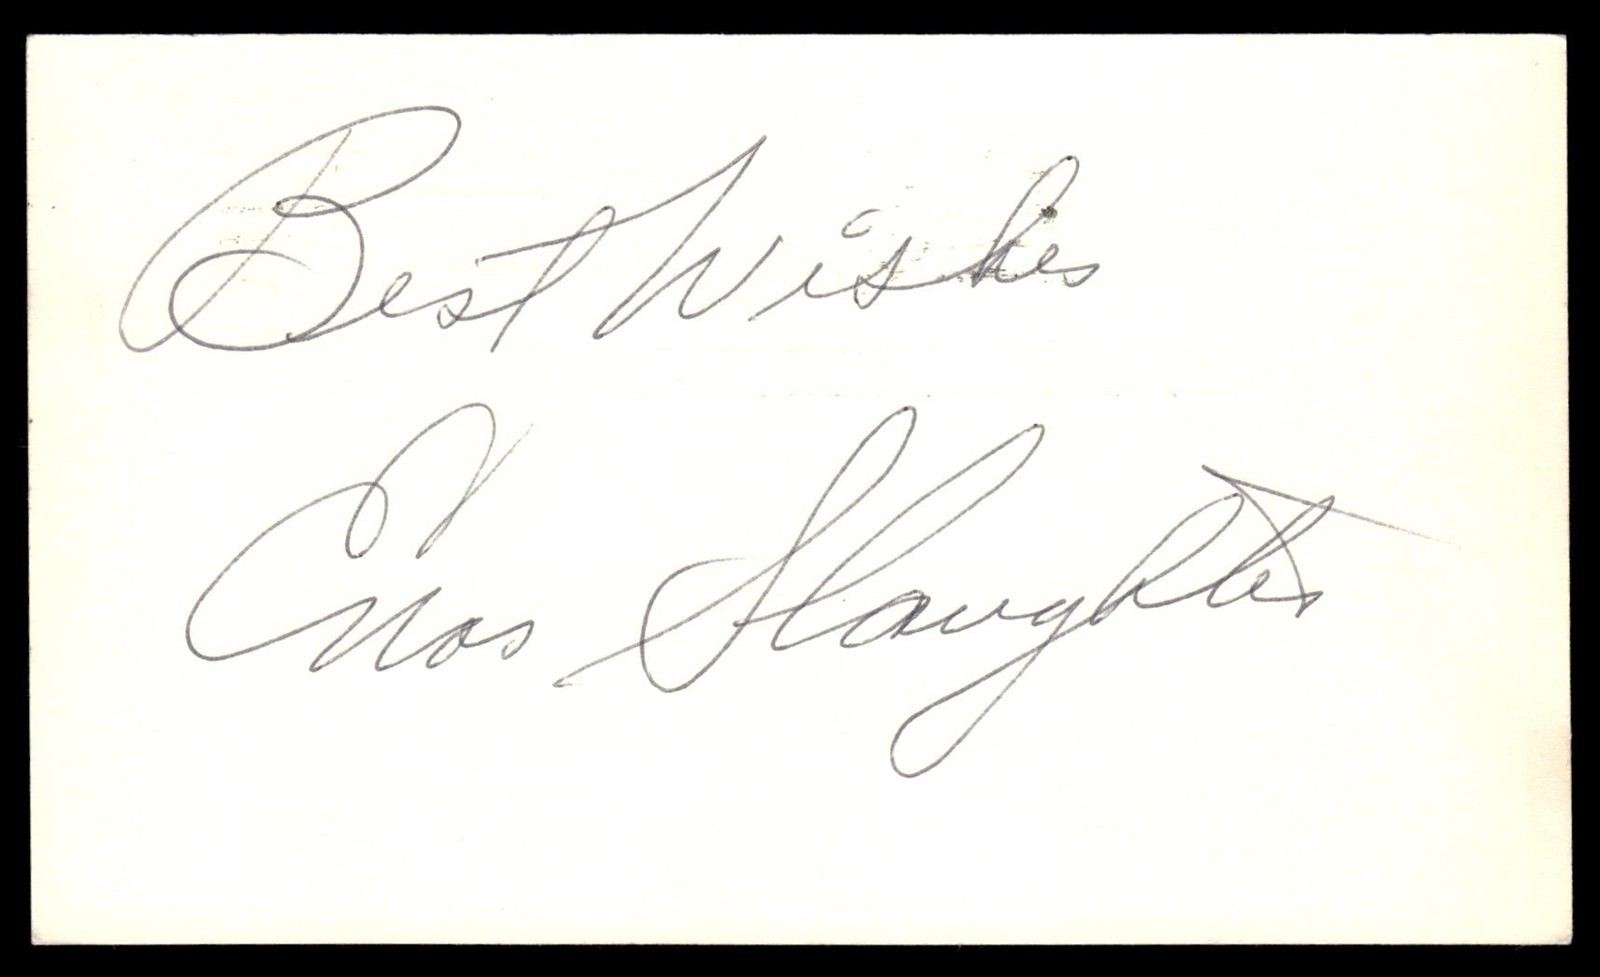 Best Wishes
Enos Slaughter